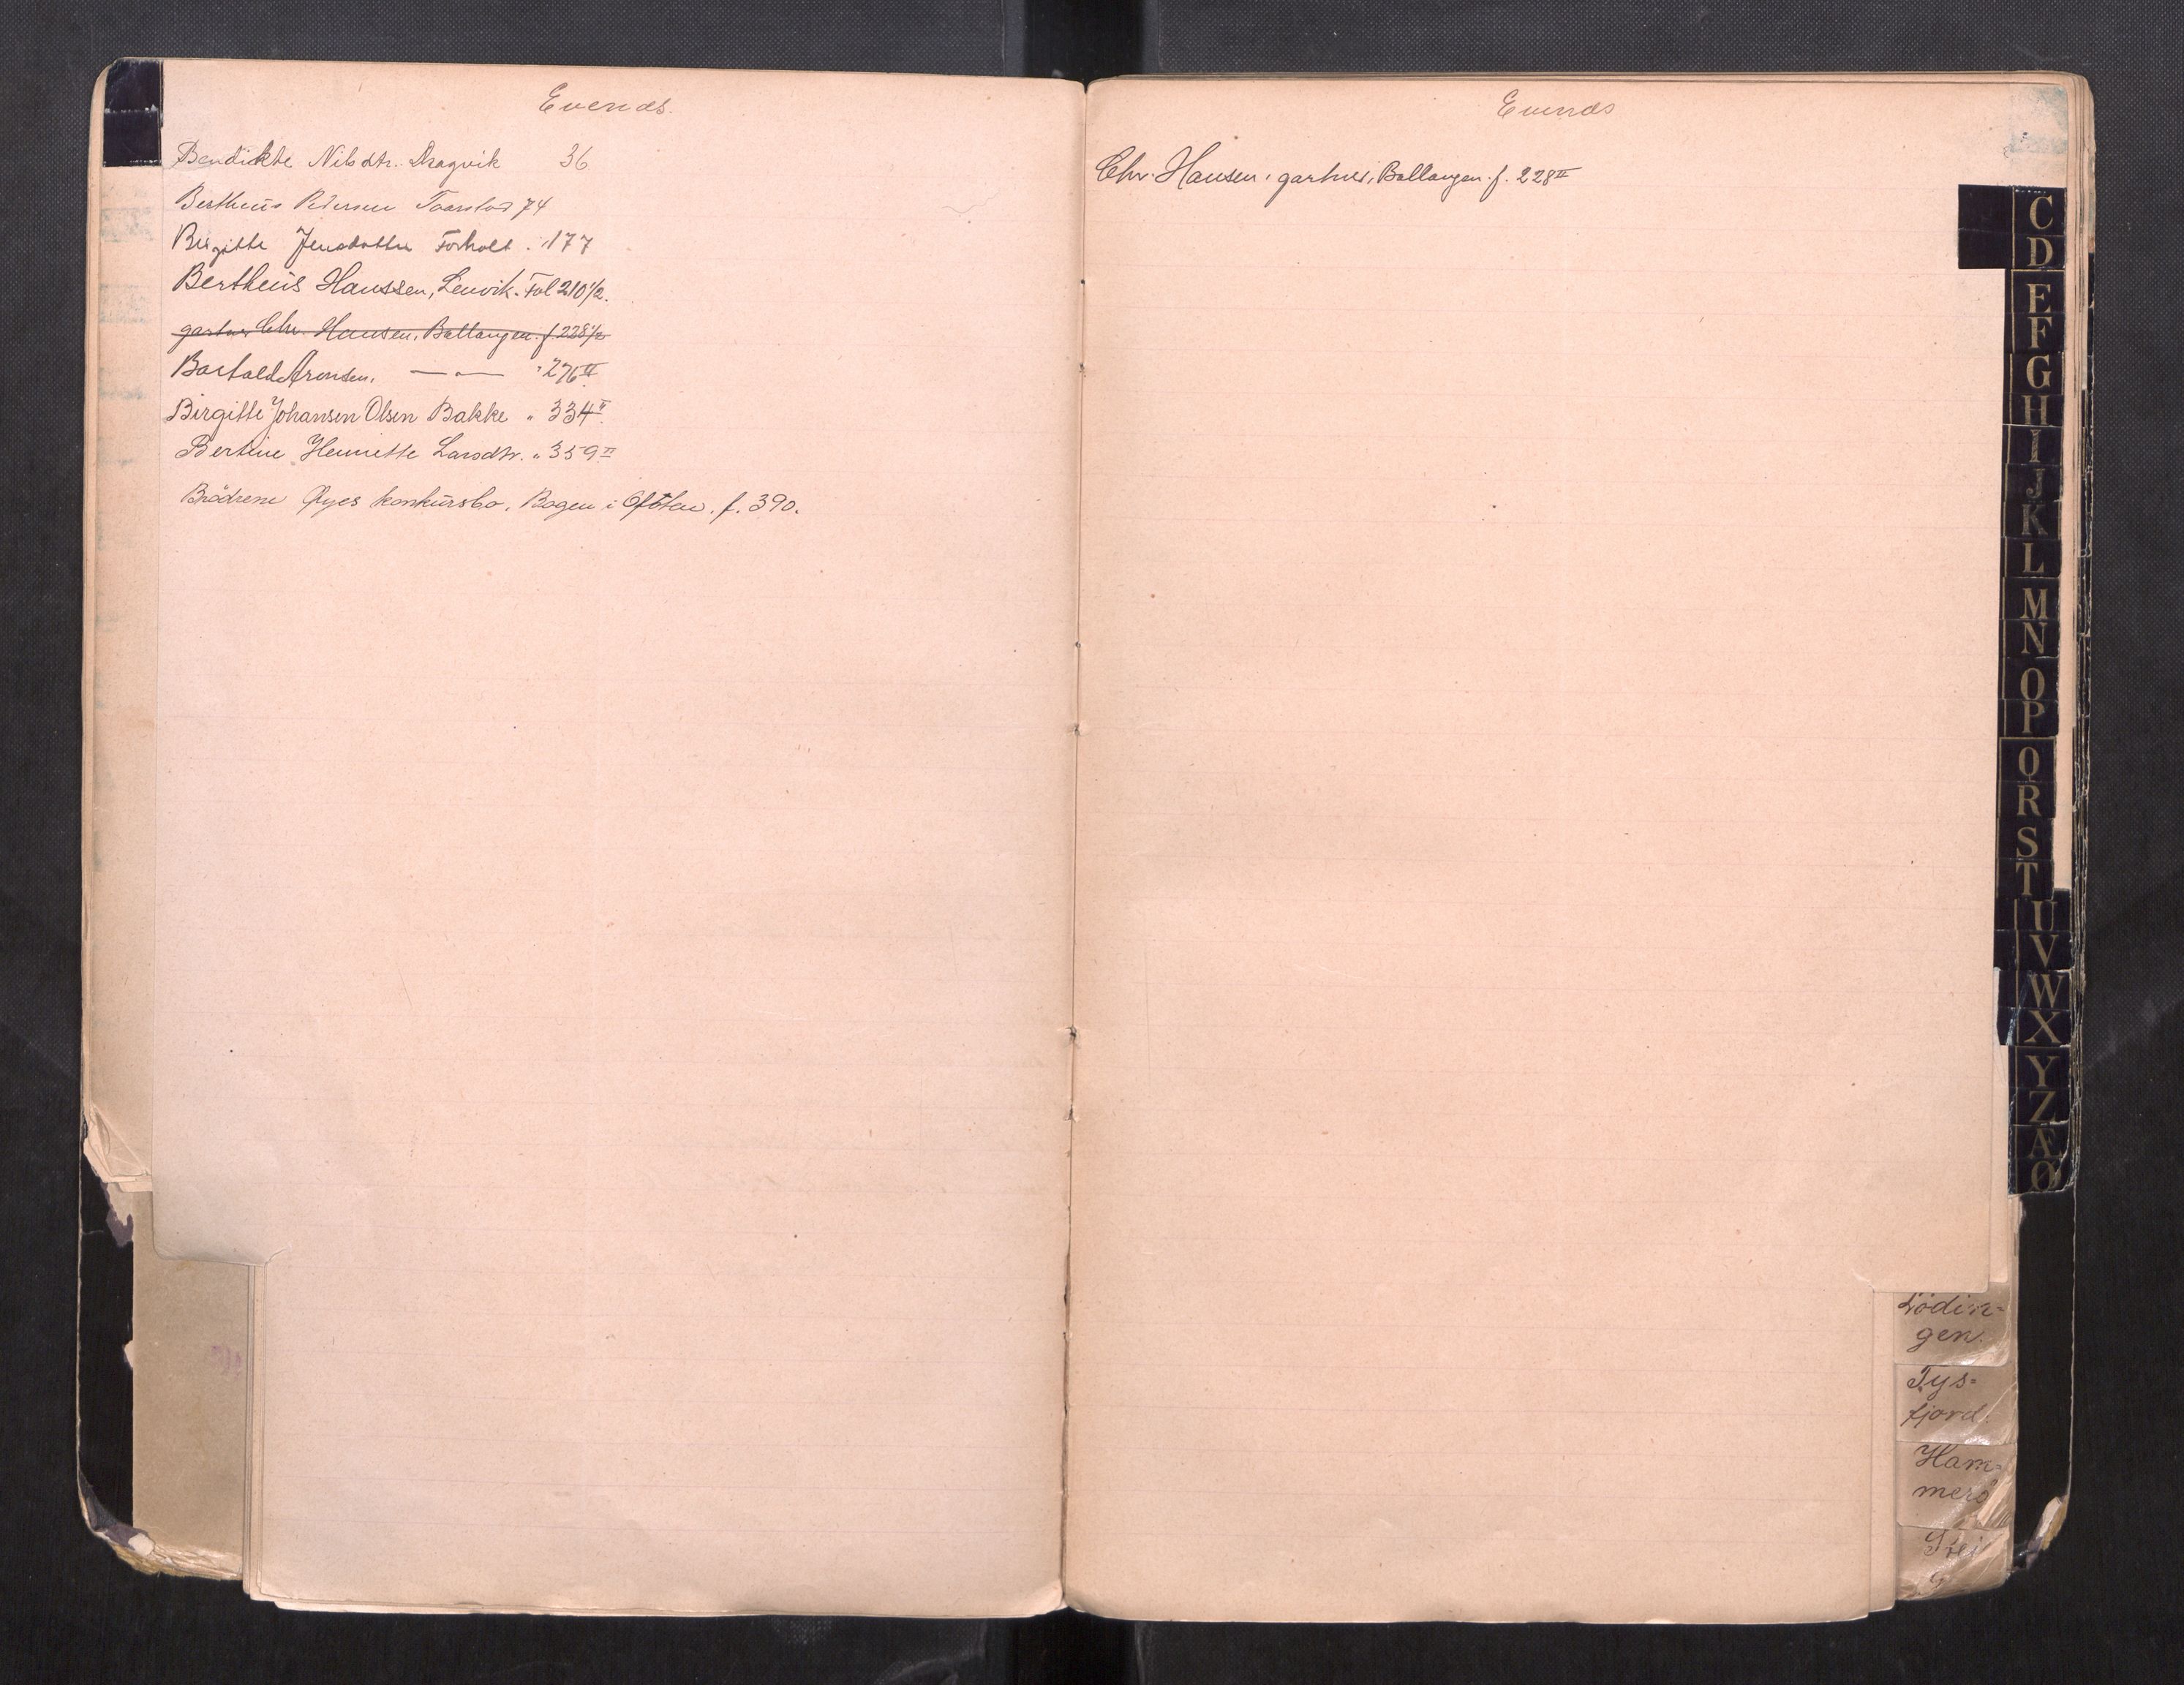 Evenæs.
Bendikte Nilsdtr. Dragvik 36
Bertheus Pedersen Taarstad 74
Birgitte Jensdatter Forholt . 177
Bertheüs Hanssen, Lenvik. Fol 210½.
gartner Chr. Hansen, Ballangen. f 228½
Bartold Aronsen. — " — " 276 II
Birgitte Johansen Olsen Bakke " 334 II
Bertine Henriette Larsdtr. " 359 II
Brödrene Øyes konkursbo, Bogen i Ofoten. f. 390.
Evenæs
Chr. Hansen, gartner, Ballangen. f. 228 II
C
D
E
F
G
H
I
J
K
L
M
N
O
P
Q
R
S
T
U
V
W
X
Y
Z
Æ
Ø
Lödin=
gen.
Tys=
fjord.
Ham=
merö